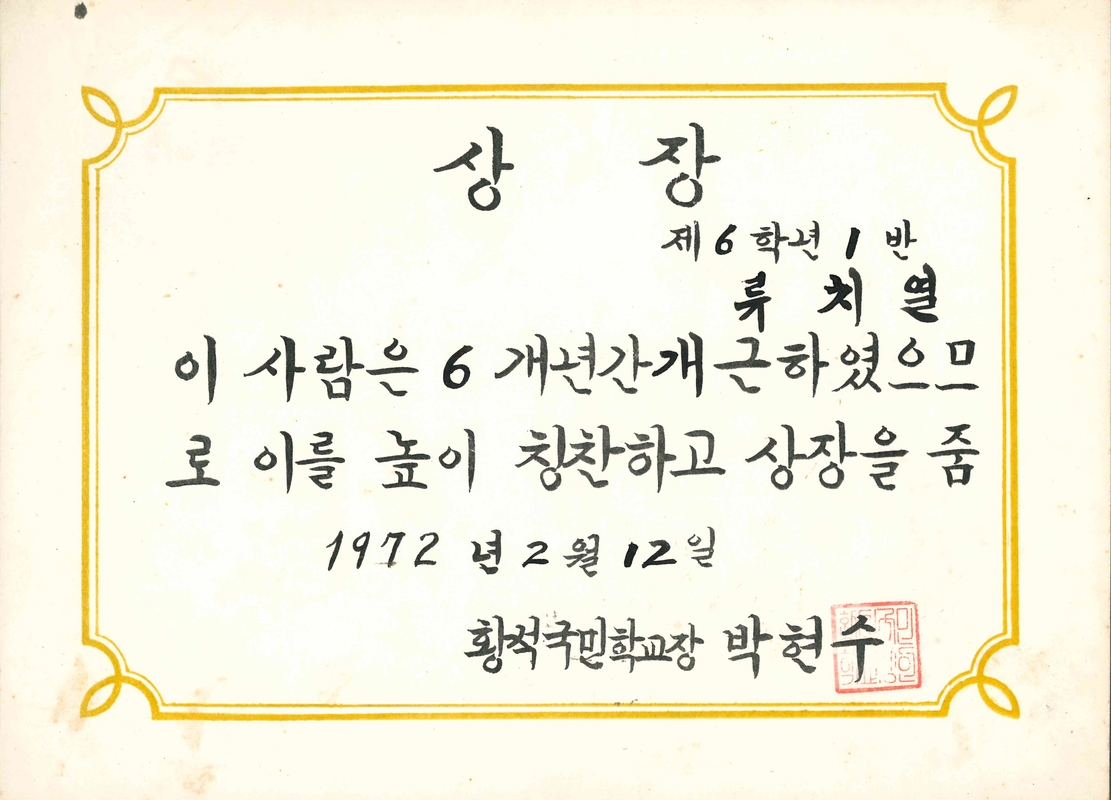 상 장
제 6 학년 1 반
류 치 열
이 사람은 6 개년간개근하였으므
로 이를 높이 칭찬하고 상장을 줌
1972 년 2 월 12 일
황석국민학교장 박현수